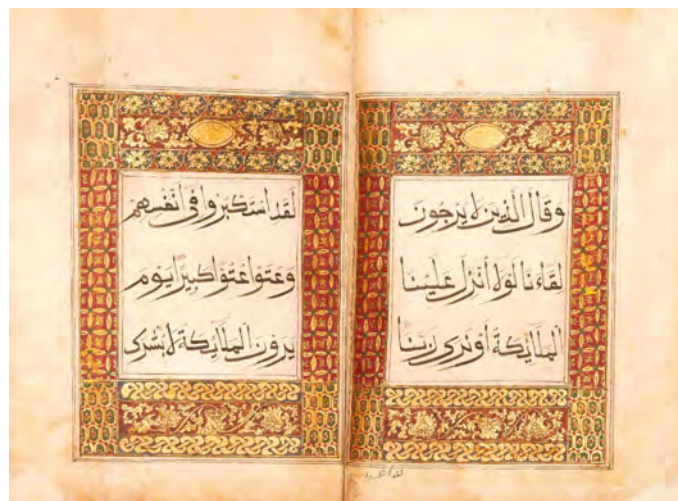 وَقَالَ الَّذِينَ لَا يَرْجُونَ
لِقَاءَنَا لَوْلَا أُنْزِلَ عَلَيْنَا
الْمَلَائِكَةُ أَوْ نَرَى رَبَّنَا
لَقَدِ اسْتَكْبَرُوا فِي أَنْفُسِهِمْ
وَعَتَوْا عُتُوًّا كَبِيرًا يَوْمَ
يَرَوْنَ الْمَلَائِكَةَ لَا بُشْرَى